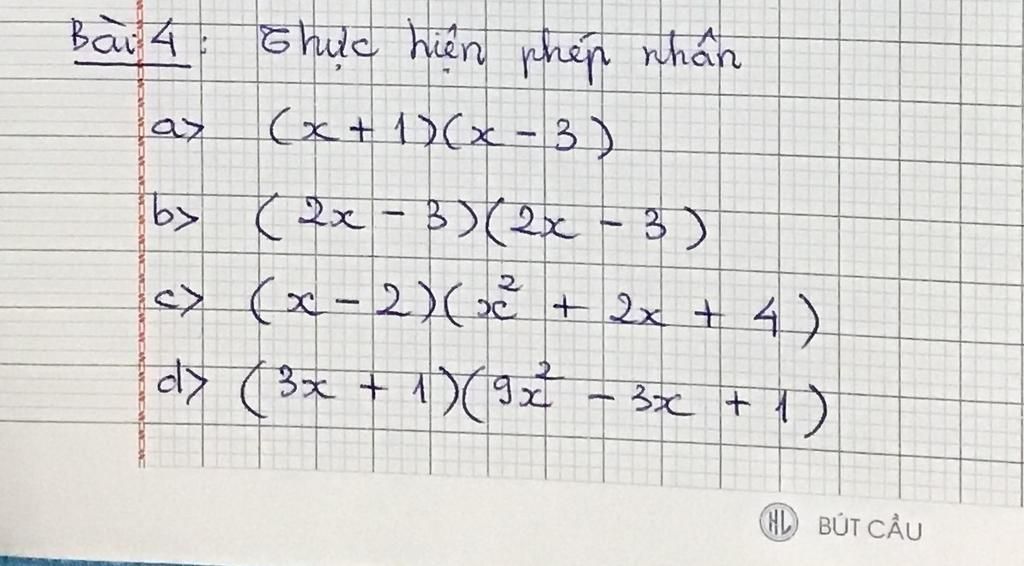 Bài 4: Thực hiện phép nhân
a> (x + 1)(x - 3)
b> (2x - 3)(2x - 3)
c> (x - 2)(x² + 2x + 4)
d> (3x + 1)(9x² - 3x + 1)
HL BÚT CẦU